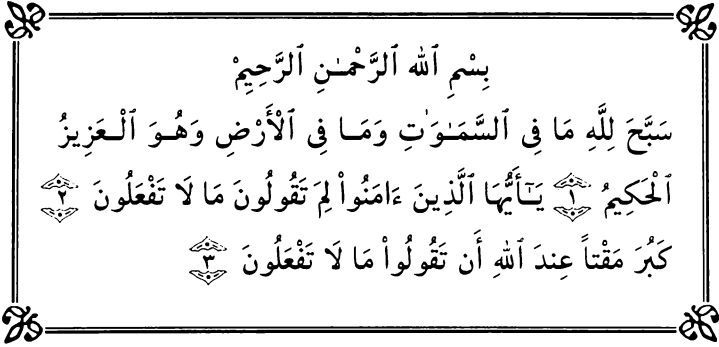 بِسْمِ ٱللهِ ٱلرَّحْمَـٰنِ ٱلرَّحِيمِ
سَبَّحَ لِلَّهِ مَا فِى ٱلسَّمَـٰوَٰتِ وَمَـا فِى ٱلْأَرْضِ وَهُـوَ ٱلْـعَـزِيـزُ
ٱلْحَكِيمُ ١ يَـٰٓأَيُّهَا ٱلَّذِينَ ءَامَنُوا۟ لِمَ تَقُولُونَ مَا لَا تَفْعَلُونَ ٢
كَبُرَ مَقْتاً عِندَ ٱللهِ أَن تَقُولُوا۟ مَا لَا تَفْعَلُونَ ٣